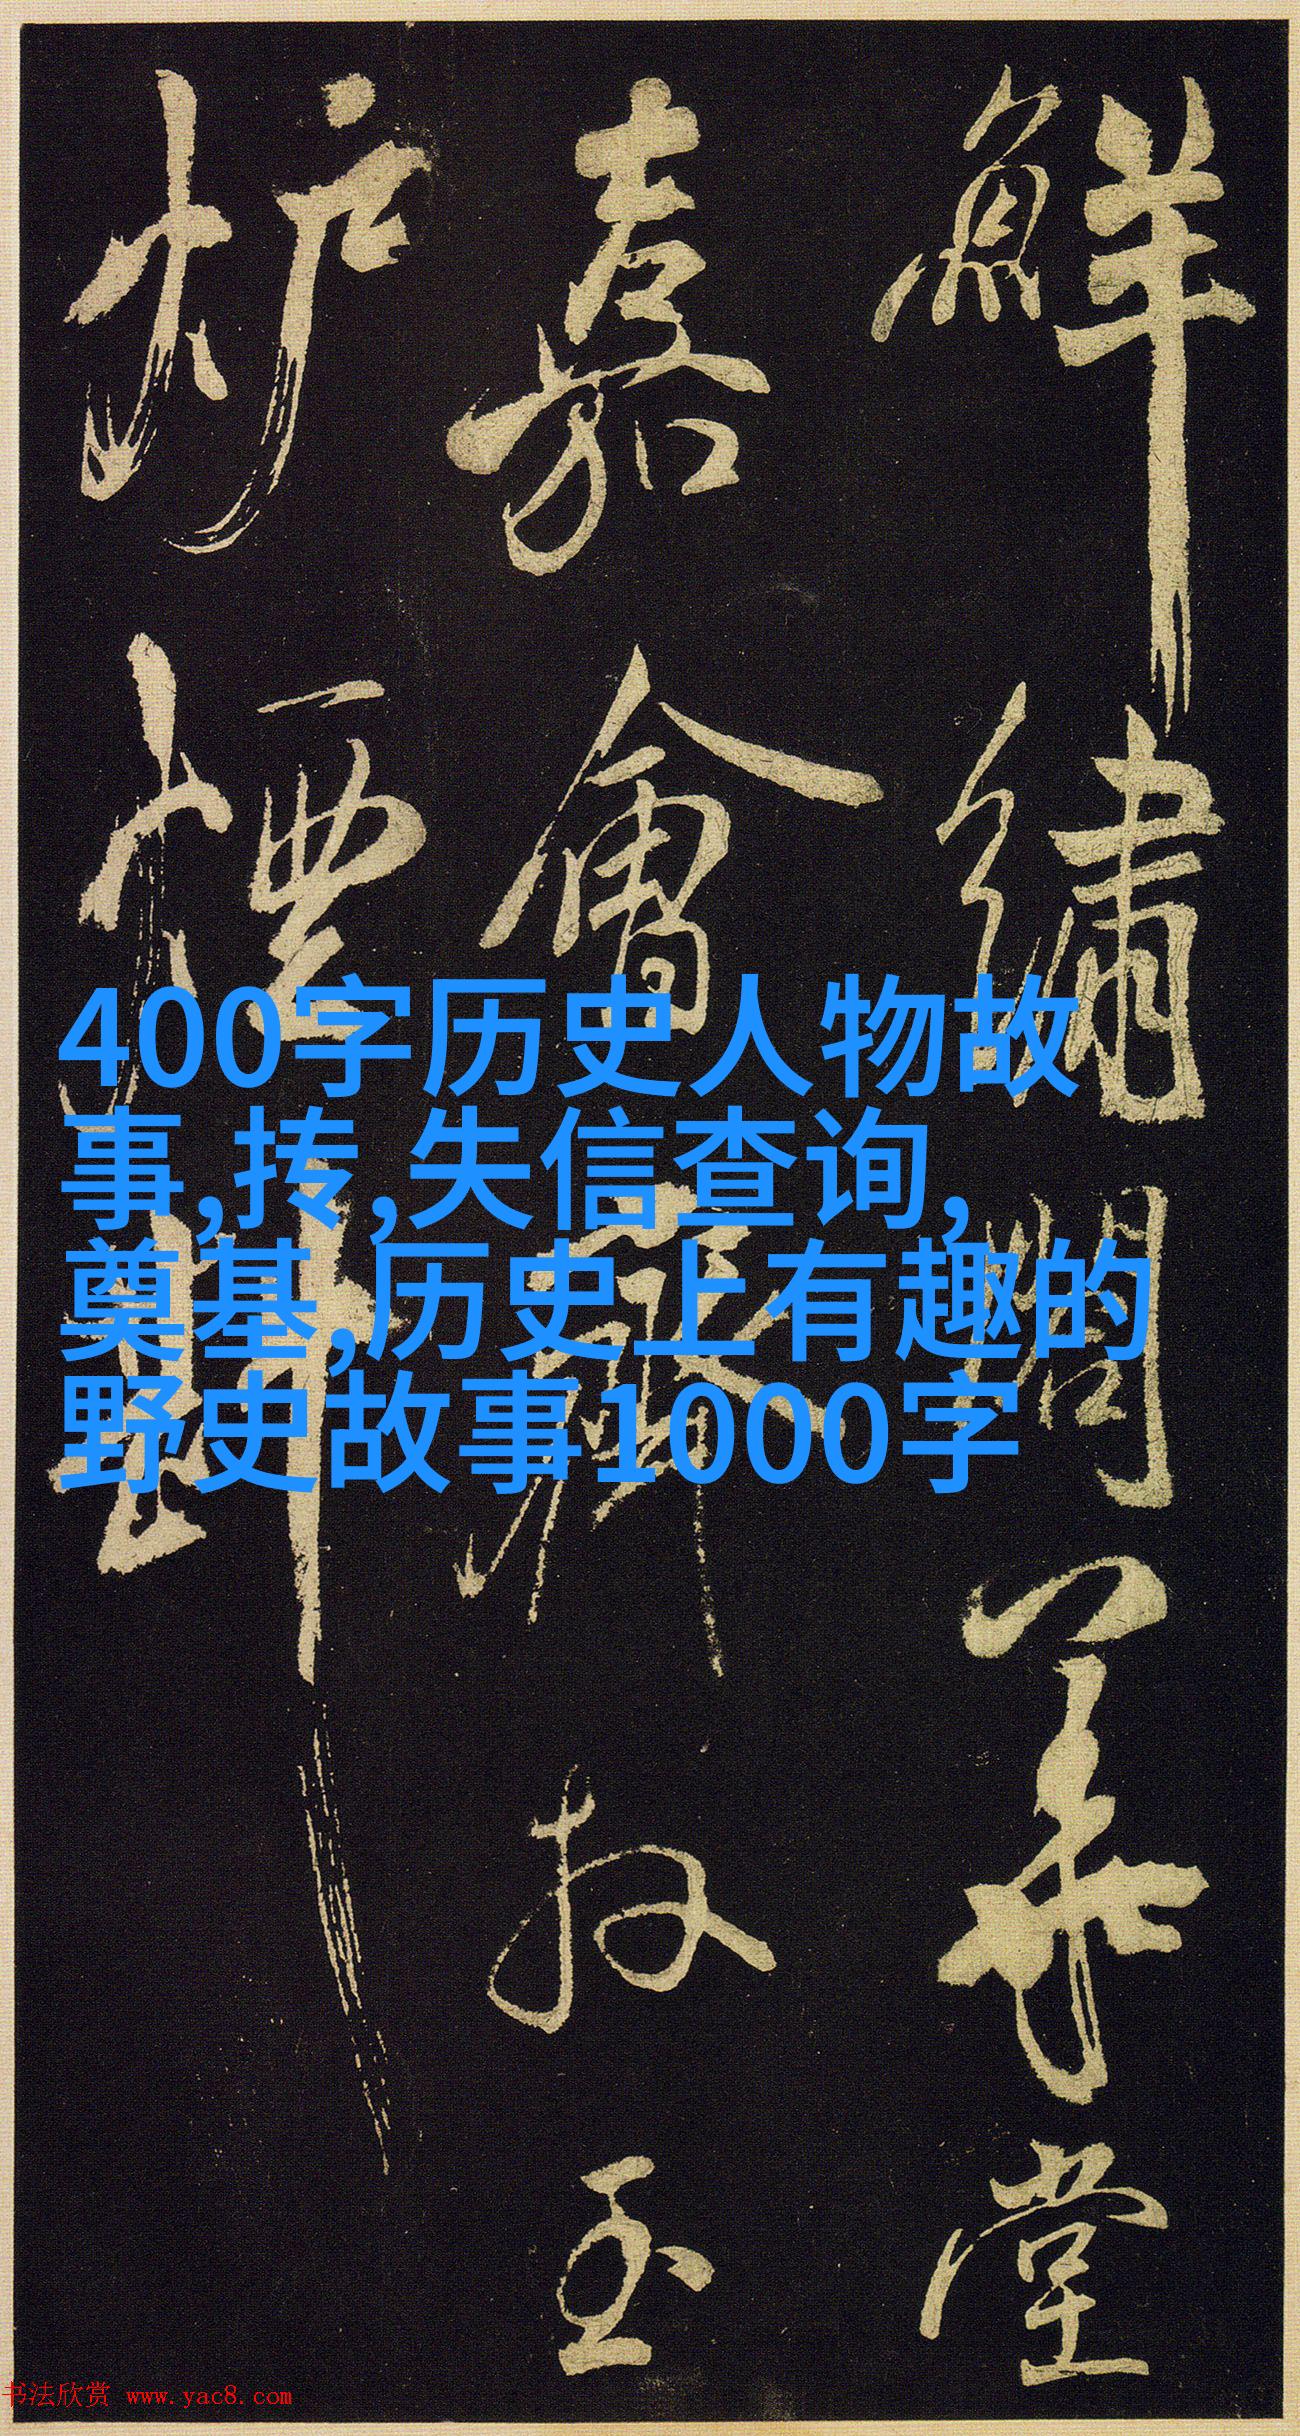 鮮繡華堂
嘉會玉
炉煙
400字历史人物故
事,抟,失信查询,
奠基,历史上有趣的
野史故事1000字
书法欣赏 www.yac8.com